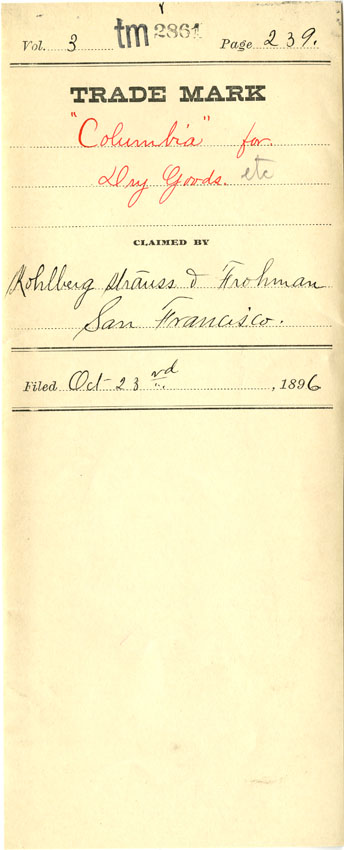 Vol. 3 tm 2861 Page 239.
TRADE MARK
"Columbia" for
Dry Goods. etc
CLAIMED BY
Kohlberg Strauss & Frohman
San Francisco.
Filed Oct 23rd, 1896